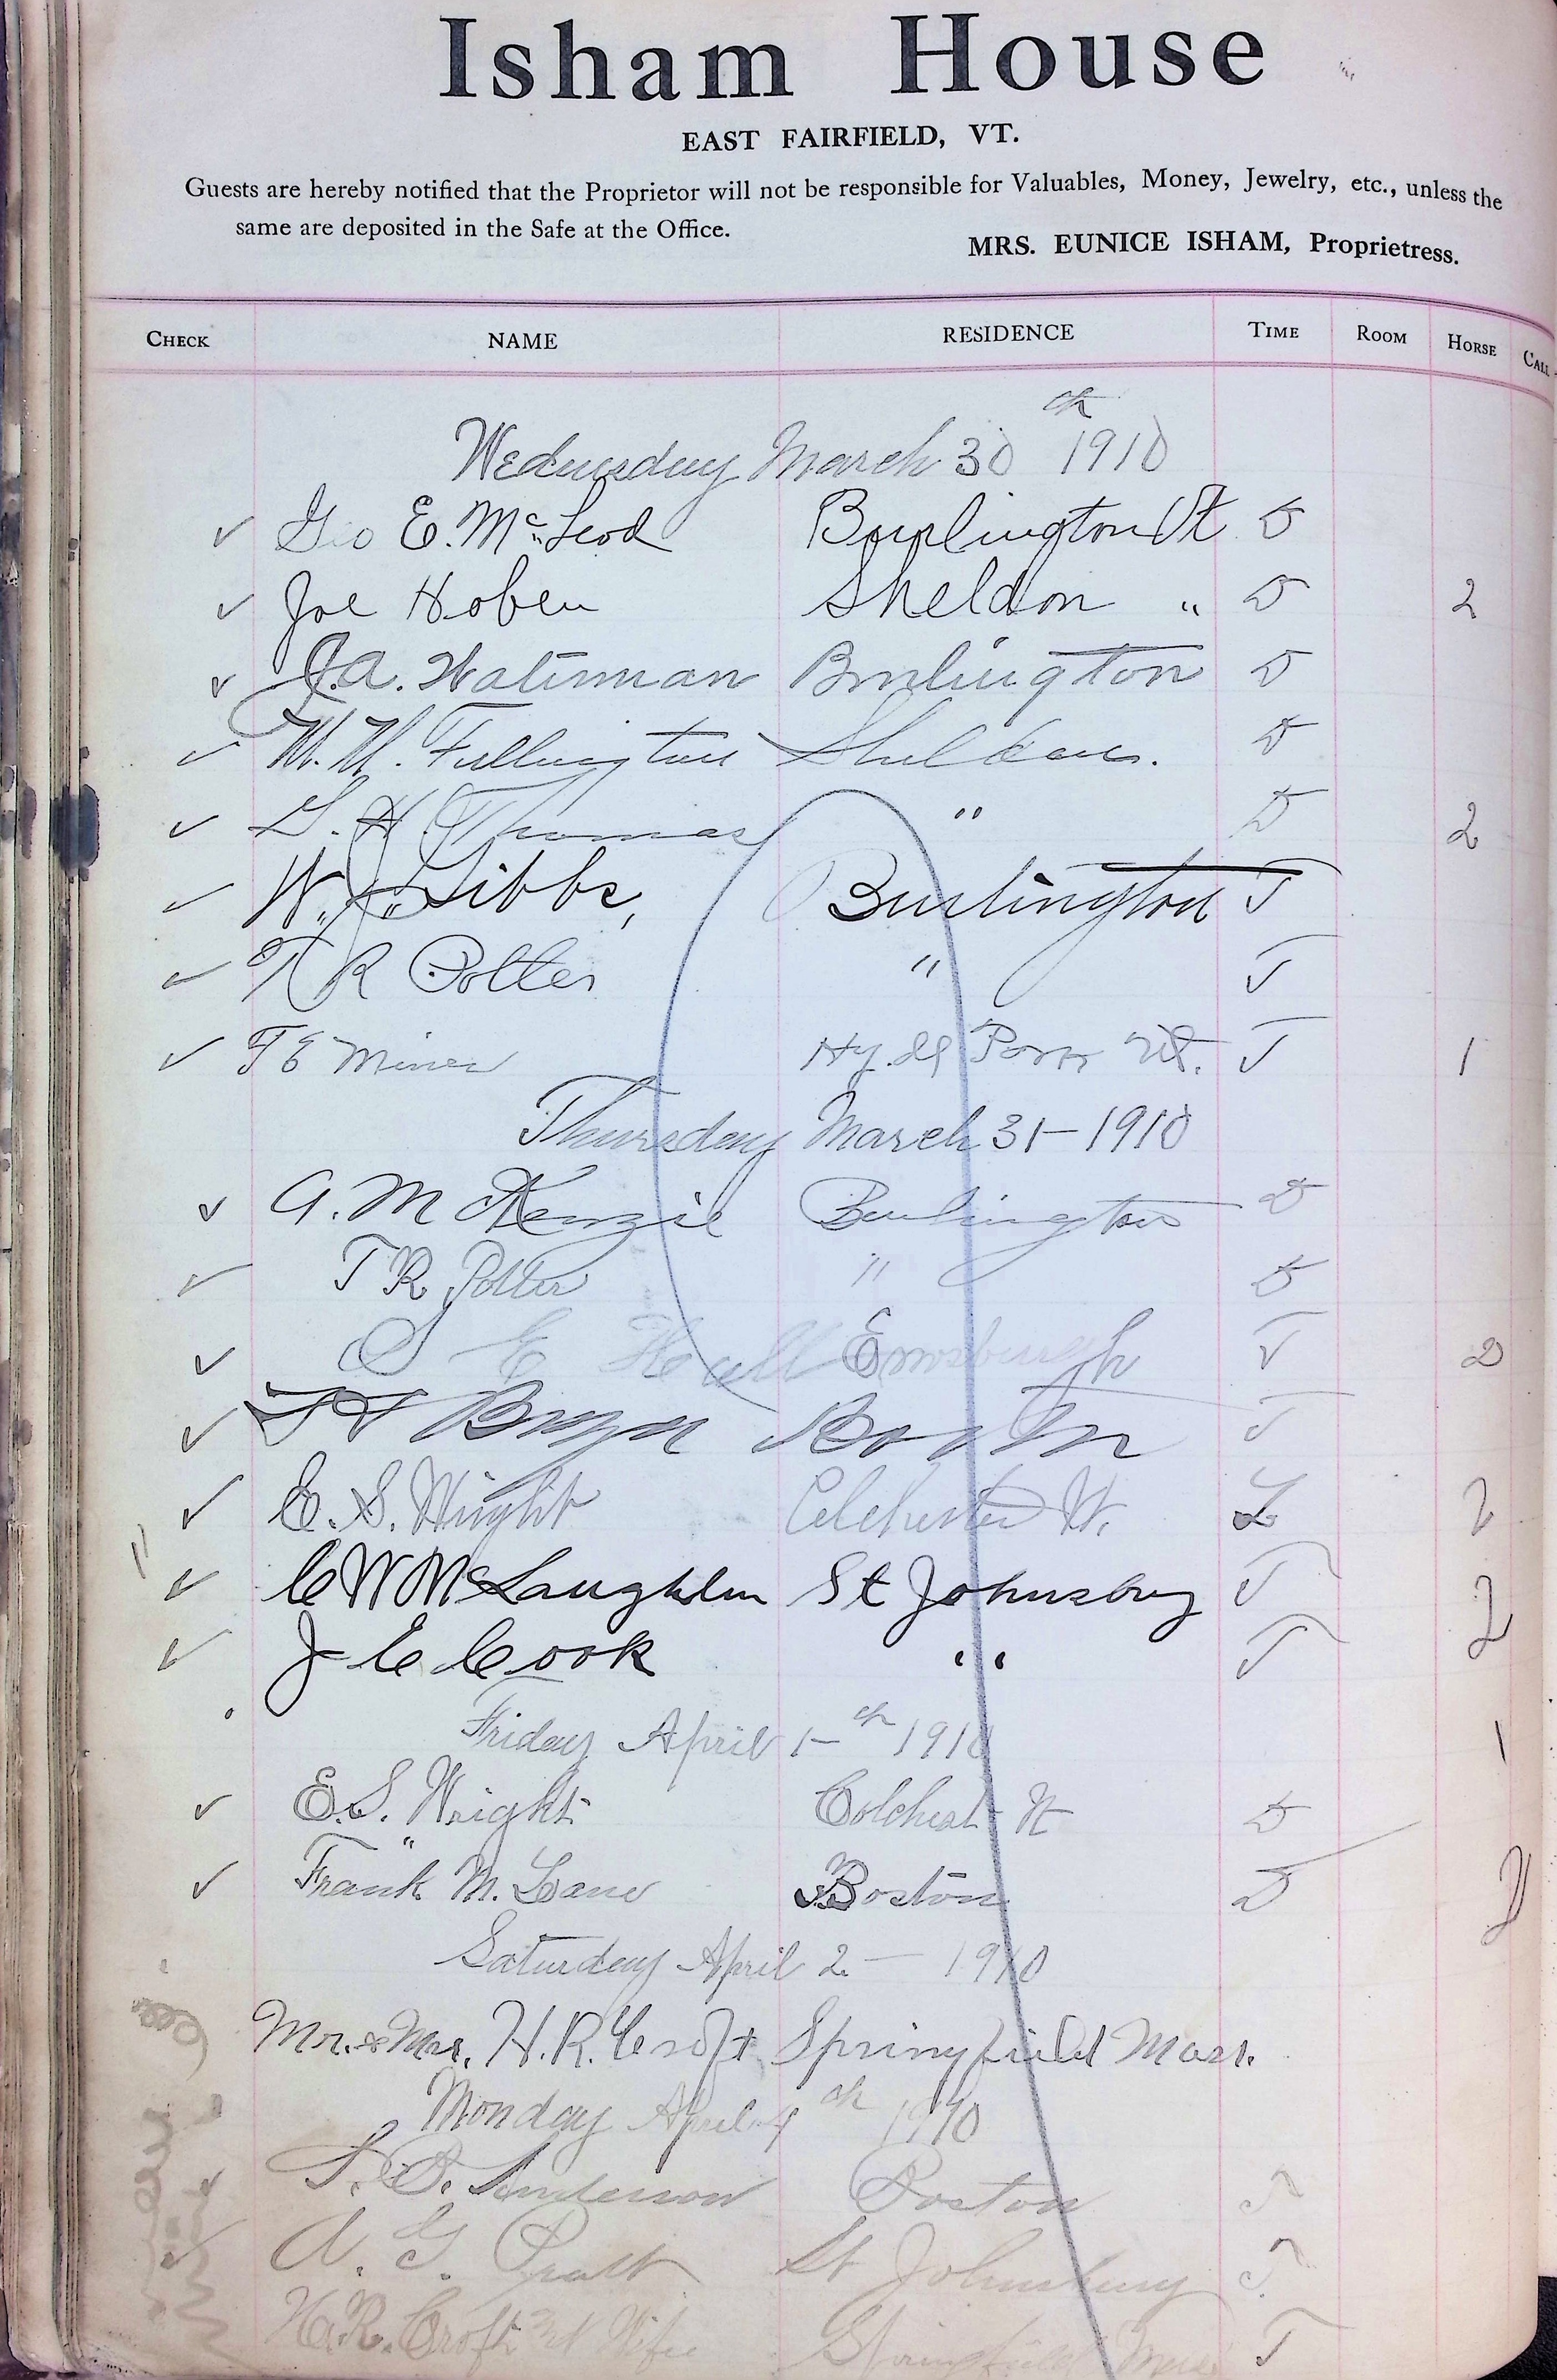 Isham House
EAST FAIRFIELD, VT.
Guests are hereby notified that the Proprietor will not be responsible for Valuables, Money, Jewelry, etc., unless the
same are deposited in the Safe at the Office.
MRS. EUNICE ISHAM, Proprietress.
CHECK NAME RESIDENCE TIME ROOM HORSE CALL
Wednesday March 30th 1910
✓ Geo E. McLeod Burlington Vt D
✓ Joe Hoben Sheldon " D 2
✓ J.A. Waterman Burlington D
✓ M. M. Fullington Sheldon. D
✓ G. H. Thomas " D 2
✓ W. J. Gibbs, Burlington T
✓ T R Potter " T
✓ T E Miner Vt. T 1
Thursday March 31- 1910
✓ A. McKenzie Burlington D
✓ T R Potter " D
✓ S E Hull Enosburgh T 2
✓ Boston T
✓ E. S. Wright Colchester Vt. L 2
" ✓ C W McLaughlin St Johnsbury T 2
✓ J E Cook " T
Friday April 1-th 1910 1
✓ E.S. Wright Colchest Vt D
✓ Frank M. Lane Boston D
Saturday April 2 - 1910
Mr. & Mrs. H. R. Croft Springfield Mass.
Monday April 4th 1910
Anderson Boston T
✓ A. G. Pratt St Johnsbury T
H.R. Croft and Wife Springfield Mass T